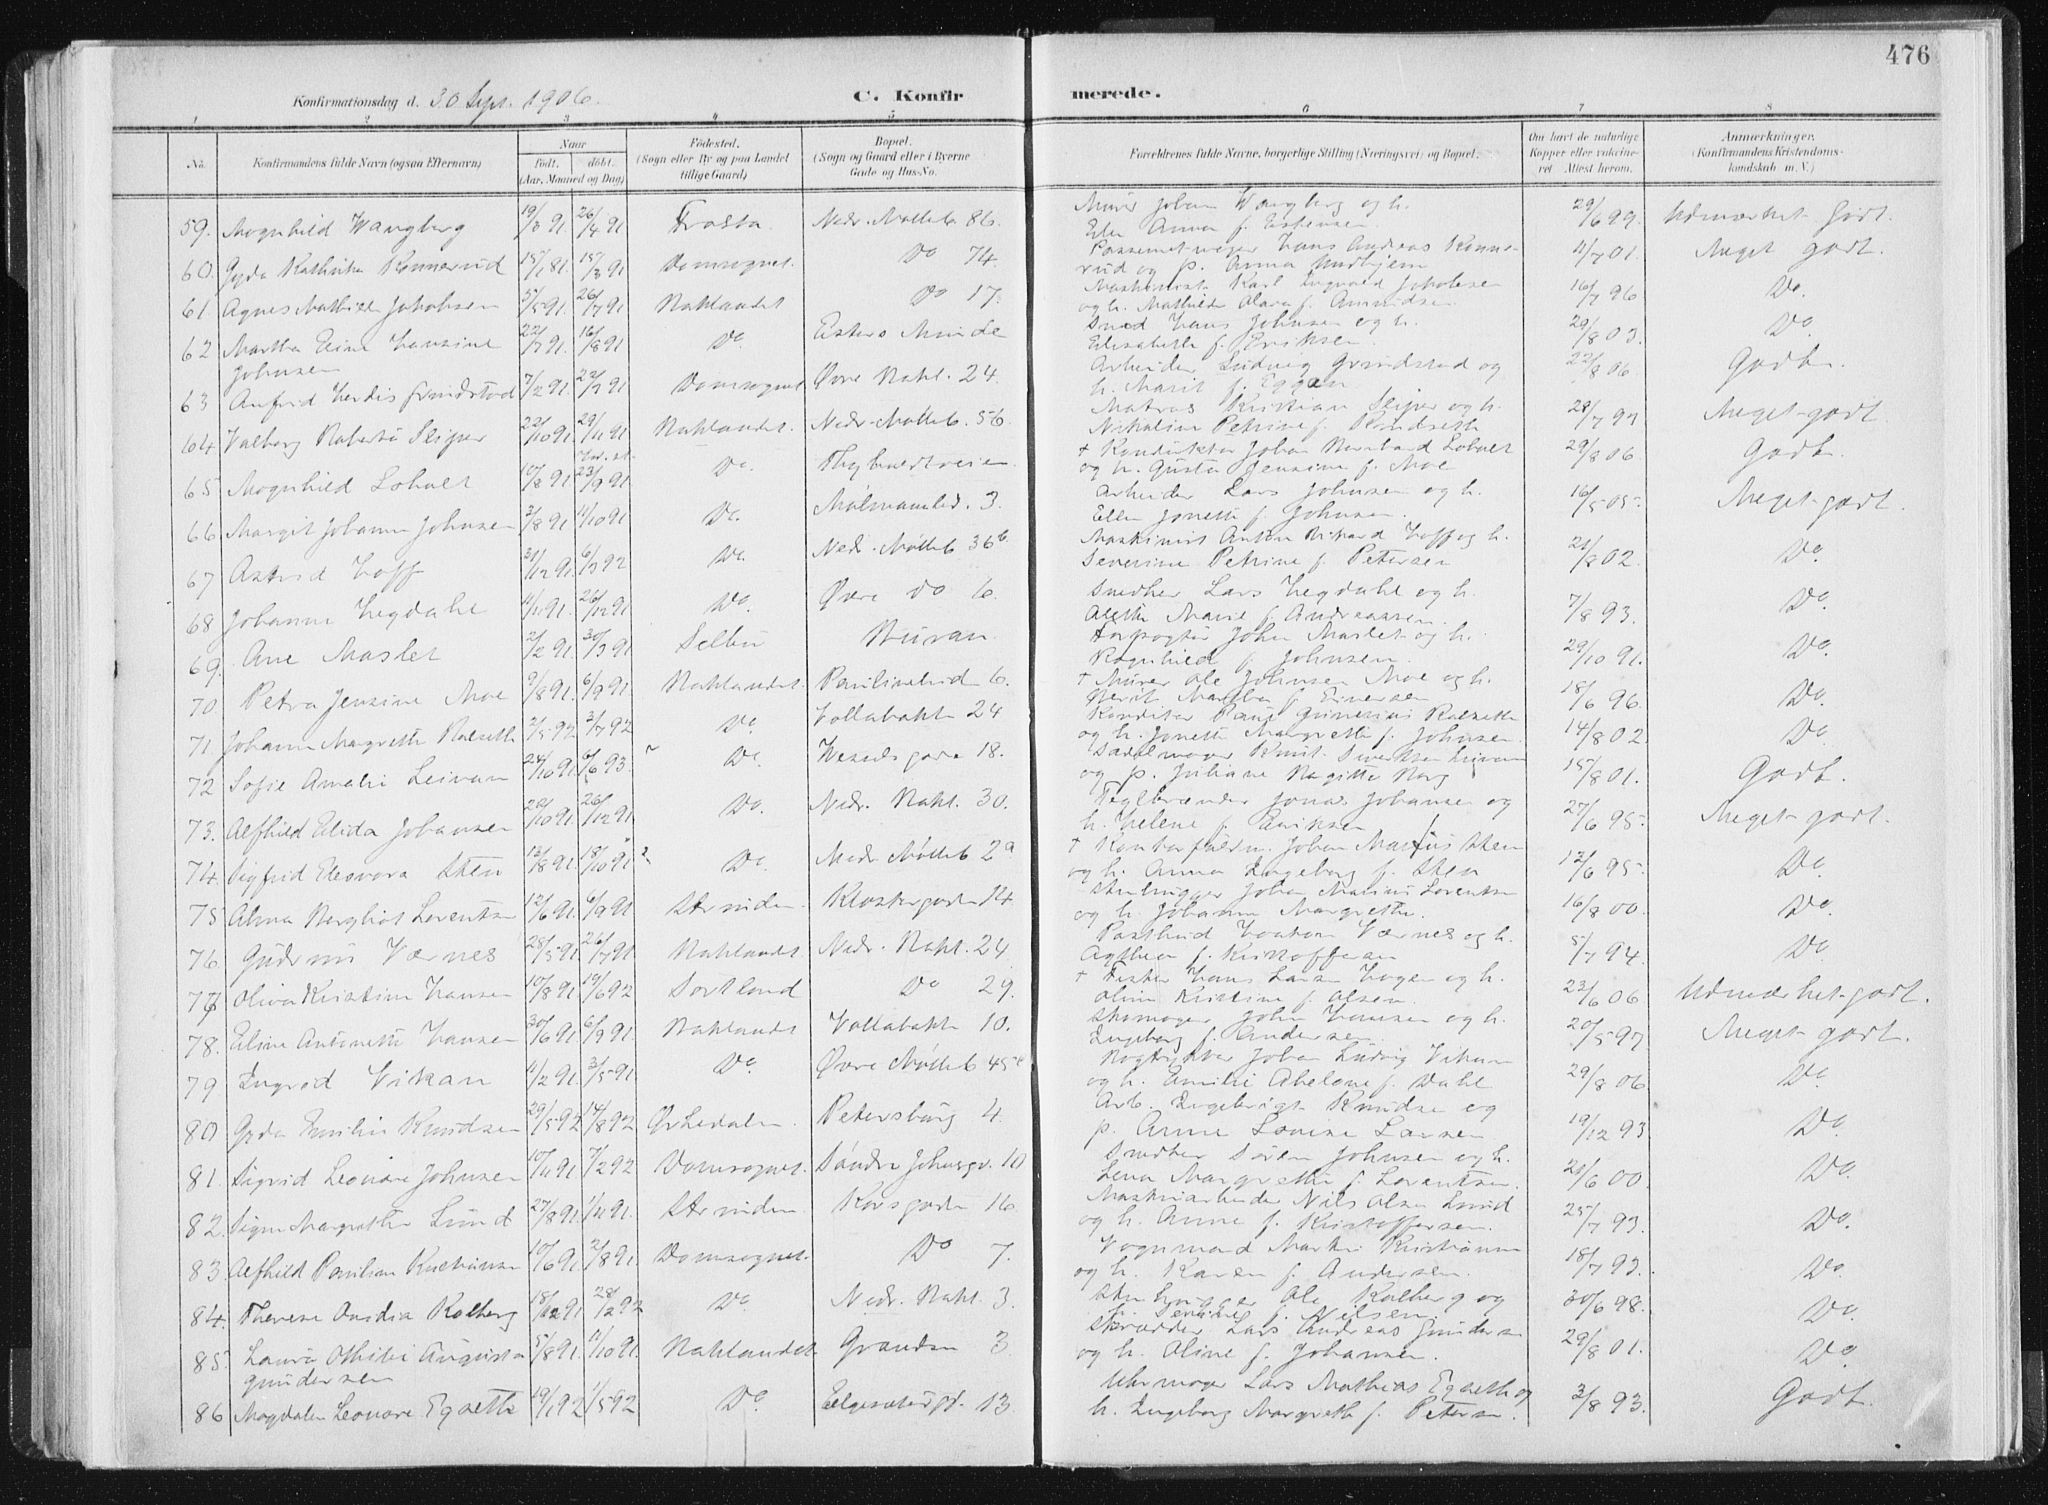 476
Konfirmationsdag d. 30 Sept. 1906.
C. Konfirmerede.
1 2 3 4 5 6 7 8
No. Konfirmandens fulde Navn (ogsaa Efternavn) Naar født. døbt. (Aar, Maaned og Dag) Fødested. (Sogn eller By og paa Landet tillige Gaard) Bopæl. (Sogn og Gaard eller i Byerne Gade og Hus-No. Forældrenes fulde Navne, borgerlige Stilling (Næringsvei) og Bopæl. Om havt de naturlige Kopper eller vaccineret. Attest herom. Anmærkninger. (Konfirmandens Kristendomskundskab m. V.)
59. Magnhild Wangberg 19/3 91 26/4 91 Frosta Nedr. Mølleb 86. Murer Johan Wangberg og h. Elen Anna f. Estensen 29/6 99. Udmærket godt.
60. Gyda Kathinka Konnerud 15/1 81. 15/3 91 Domsognet. Do 74 Hans Andreas Konnerud og p. Anna 4/7 01. Meget godt.
61. Agnes Mathilde Jakobsen 5/5 91. 26/7 91 Baklandet Do 17. Maskinist Karl Ingvald Jakobsen og h. Mathilde Olava f. Amundsen 16/7 96 Do.
62 Martha Eline Hansine Johnsen 22/7 91. 16/8 91 Do. Esters Minde Smed Hans Johnsen og h. Elisabeth f. Eriksen. 29/8 03. Do
63 Anfrid Herdis Grindstad 7/2 91. 22/7 91 Domsognet Øvre Bakl. 24. Arbeider Ludvig Grindstad og h. Marit f. Eggen 22/8 06. Godt.
64 Valborg Roberta Sliper 22/10 91 29/11 91 Baklandet. Nedr. Mølleb. 56. Matros Kristian Sliper og h. Nikoline Petrine f. Knudseth 28/7 97 Meget godt
65 Magnhild Lohvet 10/8 91 23/9 91 Do. + Konduktør Johan Bernhard Lohvet og h. Gusta Jensine f. Moe 29/8 06. Godt.
66 Margit Johanna Johnsen 3/8 91 11/10 91 Do. 3. Arbeider Lars Johnsen og h. Ellen Jonette f. Johnsen. 16/5 05. Meget godt.
67 Astrid Hoff 31/12 91. 6/3 92 Do. Nedr. Mølleb 36b Maskinist Anton Rikard Hoff og h. Severine Petrine f. Petersen 21/8 02. Do
68 Johanna Hegdahl 11/11 91. 26/12 91 Do. Øvre do 6. Smedker Lars Hegdahl og h. Alette Marie f. Andreassen. 7/8 93. Do.
69. Ane Maslet 2/2 91. 30/3 91 Selbu Buran. John Maslet og h. Ragnhild f. Johnsen. 29/10 91. Do.
70. Petra Jensine Moe 9/8 91. 6/9 91 Baklandet. 6. + Murer Ole Johnsen Moe og h. Berit Martha f. Einersen 18/6 96. Do.
71. Johanna Margrethe Ralseth 2/5 92 3/7 92 Do. Vollabakk. 24 Konditor Paul Gunerius Ralseth og h. Jonette Margrethe f. Johnsen. 14/8 02. Do
72. Sofie Amalie Leivan 24/10 91. 6/6 93. Do. 18. Sadelmager Knut Sivertsen Leivan og p. Juliane Birgitte Berg 15/8 01. Godt.
73. Alfhild Elida Johansen 22/10 91. 26/12 91 Do. Nedr. Bakl. 30. Teglbrænder Jonas Johansen og h. Helene f. Eriksen 27/6 95. Meget godt.
74. Sigfrid Eleonora Steen 13/8 91. 18/10 91 Do. Nedr. Mølleb 2a + Kontorfuldm. Johan Marius Steen og h. Anna Ingeborg f. Steen 12/6 95. Do.
75. Alma Bergliot Lorentsen 12/6 91. 6/9 91 Strinden. Klostergaden 14. Stenhugger Johan Marius Lorentsen og h. Johanna Margrethe. 16/8 00. Do.
76. Gudrun Værnes 28/5 91. 26/7 91 Baklandet Nedr. Bakl. 24 Postbud Værnes og h. Agthea f. Kristoffersen 5/7 94. Do
77 Oliva Kristine Hansen 10/8 91. 19/6 92 Sortland Do 29. + Fisker Hans Larsen Hagen og h. Oline Kristine f. Olsen. 23/6 06 Udmærket godt.
78. Eline Antonette Hansen 30/6 91. 6/9 91. Baklandet Vollabakk. 10. Skomager John Hansen og h. Ingeborg f. Andersen 20/5 97 Meget godt.
79 Ingrid Vikan 11/2 91. 3/5 91. Do. Øvre Mølleb 45c Bogtrykker Johan Ludvig Vikan og h. Emilie Abelone f. Dahl 29/8 06. Do.
80 Gyda Emilie Knudsen 29/5 92 14/8 92 Orkedalen. Petersborg 4. Arb. Ingebrigt Knudsen og p. Anne Lovise Larsen 19/12 93 Do.
81. Sigrid Leonore Johnsen 10/11 91. 7/2 92 Domsognet. Søndre Johnsgt. 10 Snedker Søren Johnsen og h. Lena Margrethe f. Lorentsen. 21/6 00. Do.
82. Signe Margrethe Lund 27/8 91. 1/11 91. Strinden Korsgaden 16. Maskinarbeider Nils Olsen Lund og h. Anne f. Kristoffersen. 25/7 93. Do.
83. Alfhild Pauline Kristiansen 10/6 91. 2/8 91. Domsognet. Do 7. Vognmand Martin Kristiansen og h. Karen f. Andersen. 18/7 93. Do.
84. Therese Ovidia Kolberg 18/12 91. 28/2 92 Do. Nedr. Bakl. 3. Stenhugger Ole Kolberg og h. f. Nilsen. 30/6 98. Do.
85. Laura Othilie Augusta Gundersen 5/8 91. 11/10 91. Baklandet. Granden 3. Skrædder Lars Andreas Gundersen og h. Aline f. Johansen. 29/8 01. Do.
86 Magdalena Leonore Egseth 19/1 92 1/5 92 Do. Elgesætergt. 13. Uhrmager Lars Mathias Egseth og h. Ingeborg Margreth f. Petersen. 3/8 93. Godt.